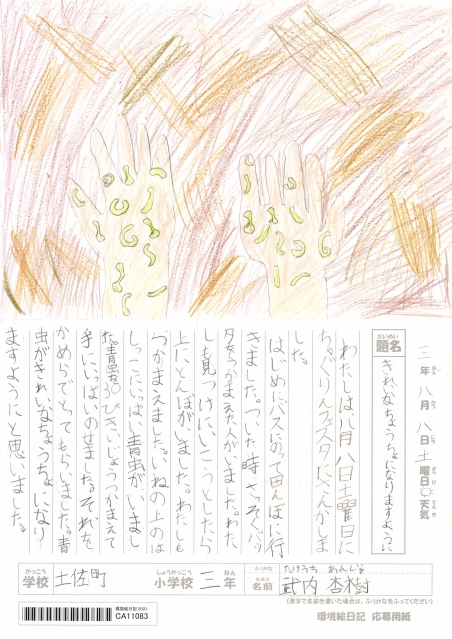 三年八月八日土曜日天気
ねん がつ にち ようび てんき
だいめい
題名
きれいなちょうちょになりますように
わたしは、八月八日土曜日に
はじめにバスにのって田んぼに行
きました。ついた時、さっそくバッ
タをつかまえた人がいました。わた
しも見つけにいこうとしたら
上にとんぼがいました。わたしも
つかまえました。いねの上のは
しっこにいっぱい青虫がいまし
た。青虫を30ぴきいじょうつかまえて
手にいっぱいのせました。それを
かめらでとってもらいました。青
虫がきれいなちょうちょになり
ますようにと思いました。
がっこう
学校
土佐町
しょうがっこう
小学校
三
ねん
年
ふりがな
たけうち あんじゅ
なまえ
名前
武内 杏樹
(漢字で名前を書いた場合は、ふりがなをふってください)
環境絵日記2020
CA11083
環境絵日記 応募用紙